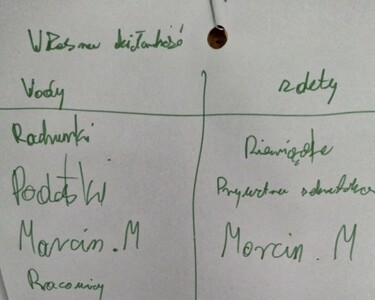 Własna działalność
Wady
zalety
Rachunki
Pieniądze
Podatki
Marcin.M
Marcin.M
Pracownicy